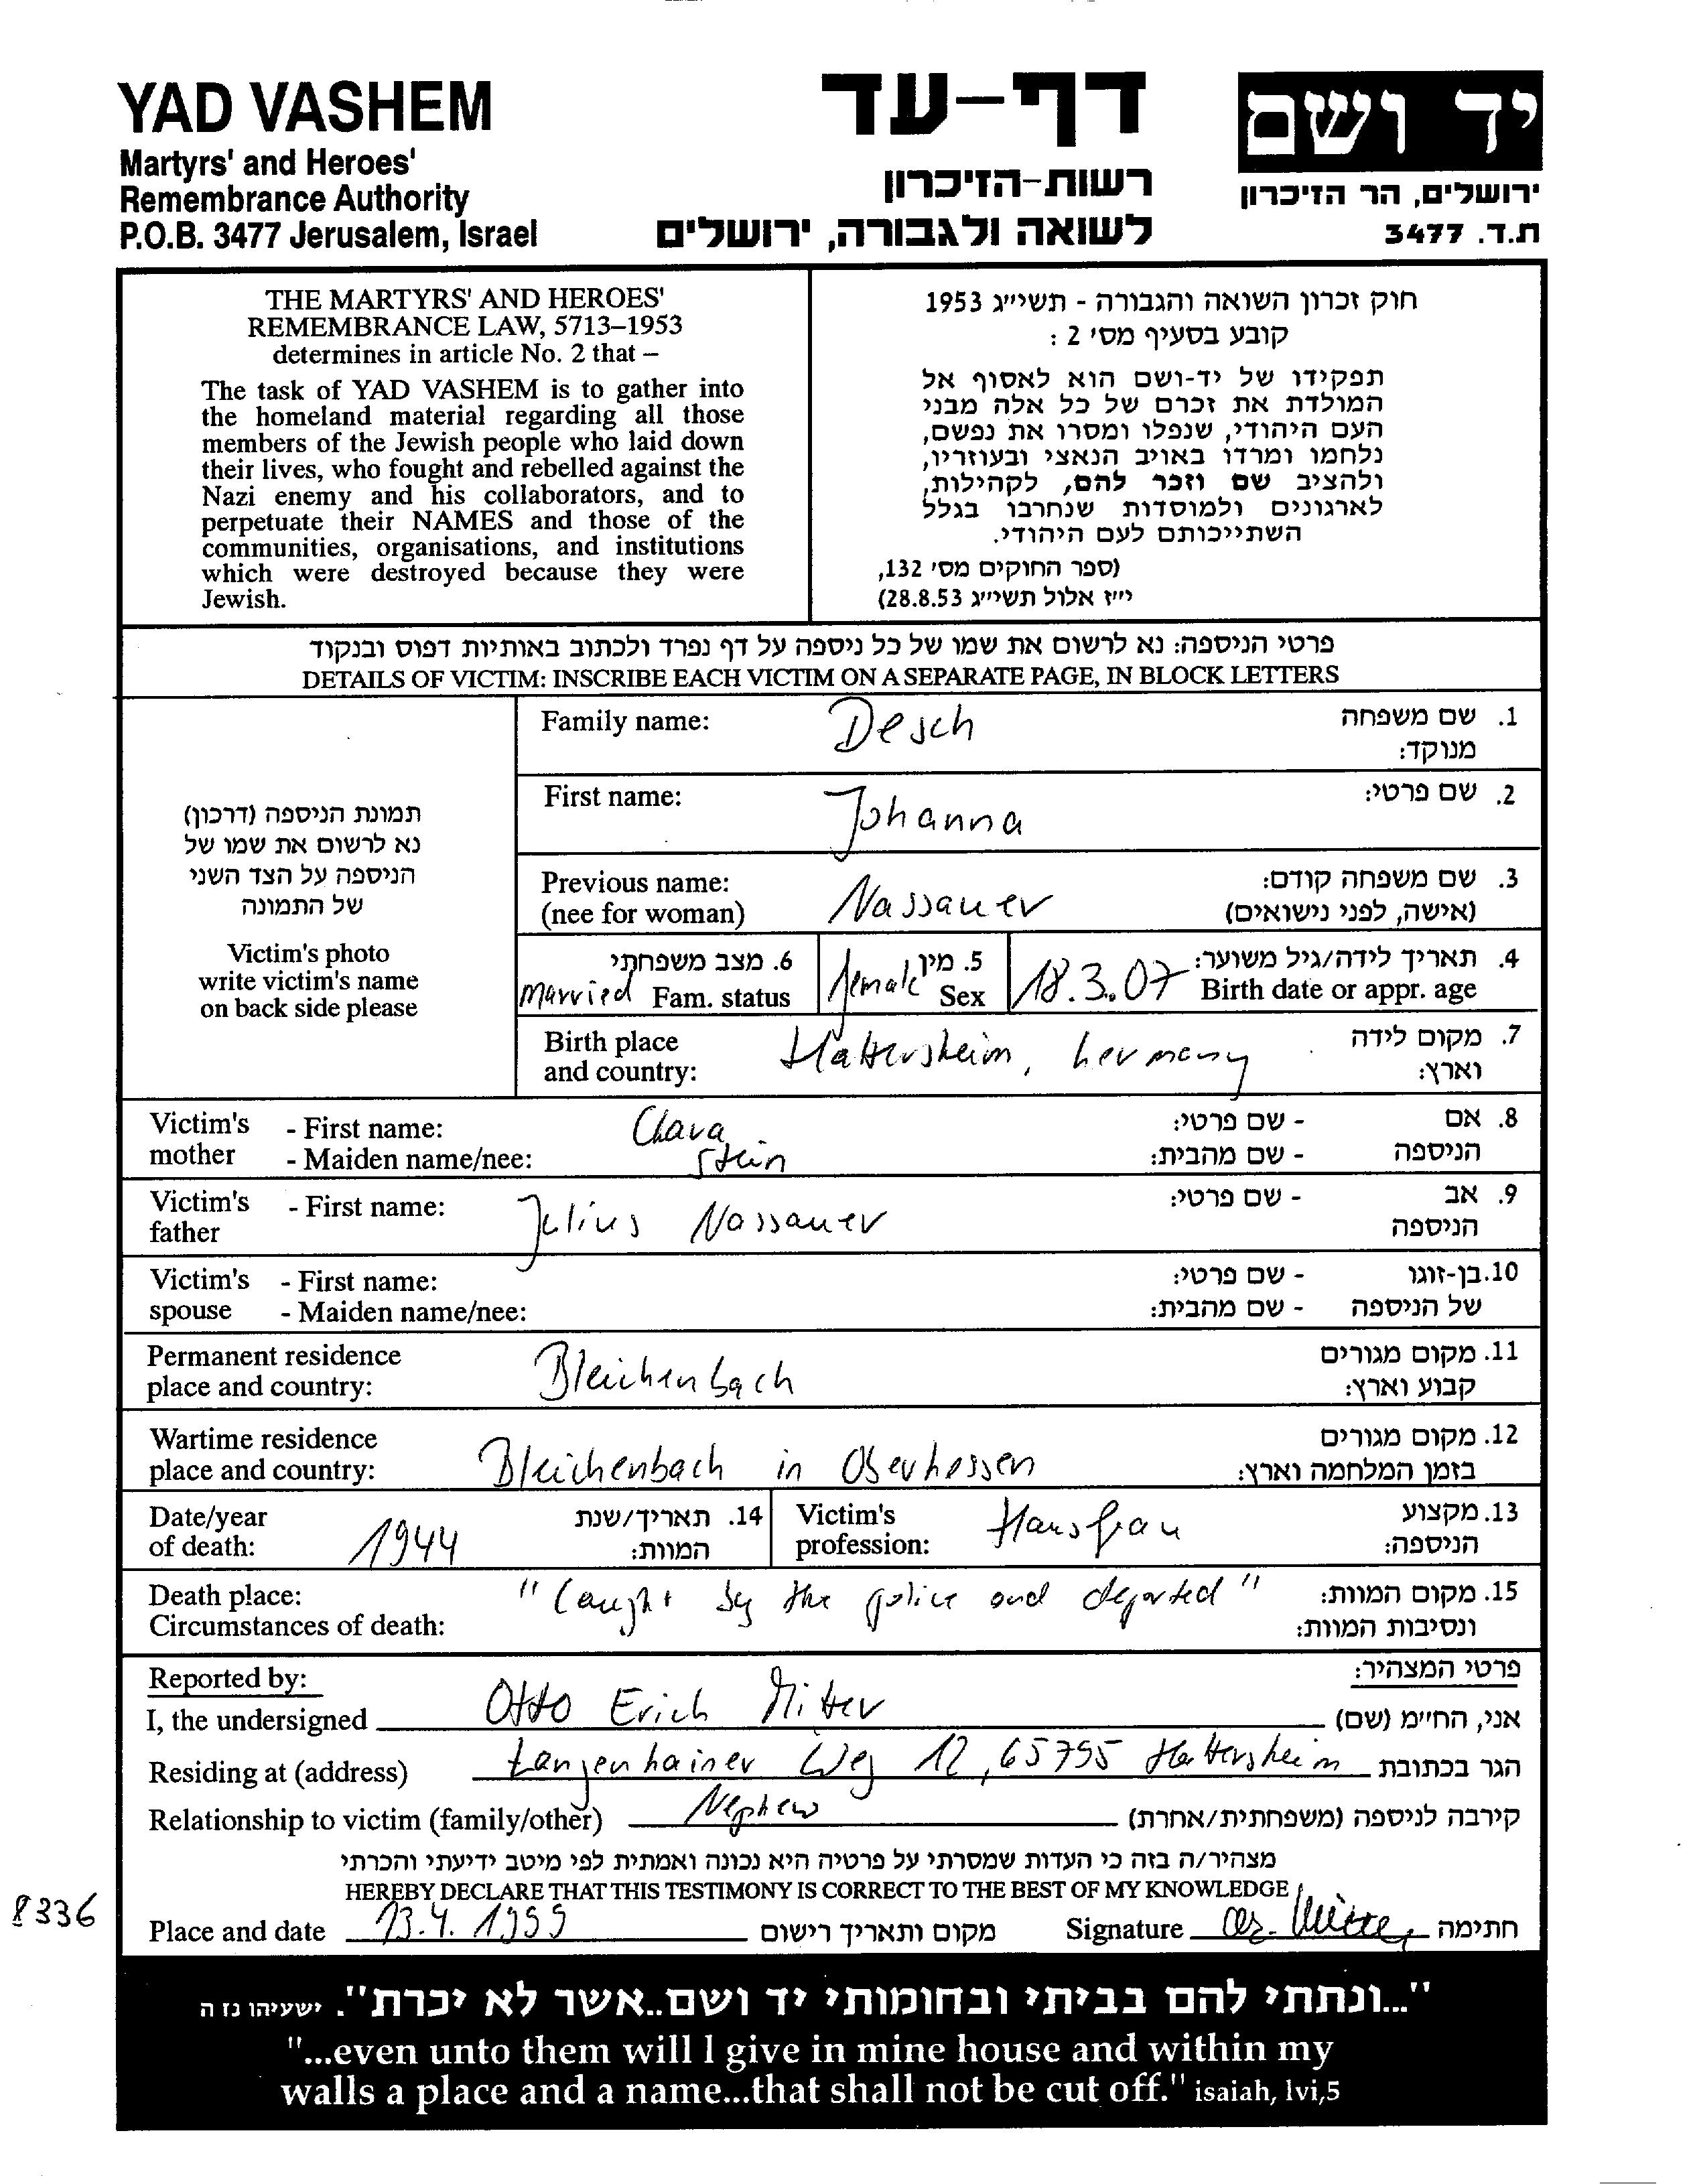 YAD VASHEM
Martyrs' and Heroes'
Remembrance Authority
P.O.B. 3477 Jerusalem, Israel
דף-עד
רשות-הזיכרון
לשואה ולגבורה, ירושלים
יד ושם
ירושלים, הר הזיכרון
ת.ד. 3477
THE MARTYRS' AND HEROES'
REMEMBRANCE LAW, 5713–1953
determines in article No. 2 that –
The task of YAD VASHEM is to gather into
the homeland material regarding all those
members of the Jewish people who laid down
their lives, who fought and rebelled against the
Nazi enemy and his collaborators, and to
perpetuate their NAMES and those of the
communities, organisations, and institutions
which were destroyed because they were
Jewish.
חוק זכרון השואה והגבורה - תשי״ג 1953
קובע בסעיף מס׳ 2 :
תפקידו של יד-ושם הוא לאסוף אל
המולדת את זכרם של כל אלה מבני
העם היהודי, שנפלו ומסרו את נפשם,
נלחמו ומרדו באויב הנאצי ובעוזריו,
ולהציב שם וזכר להם, לקהילות,
לארגונים ולמוסדות שנחרבו בגלל
השתייכותם לעם היהודי.
(ספר החוקים מס׳ 132,
י״ז אלול תשי״ג 28.8.53)
פרטי הניספה: נא לרשום את שמו של כל ניספה על דף נפרד ולכתוב באותיות דפוס ובנקוד
DETAILS OF VICTIM: INSCRIBE EACH VICTIM ON A SEPARATE PAGE, IN BLOCK LETTERS
תמונת הניספה (דרכון)
נא לרשום את שמו של
הניספה על הצד השני
של התמונה
Victim's photo
write victim's name
on back side please
Family name: Desch 1. שם משפחה
מנוקד:
First name: Johanna 2. שם פרטי:
Previous name: 3. שם משפחה קודם:
(nee for woman) Nassauer (אישה, לפני נישואים)
6. מצב משפחתי 5. מין 4. תאריך לידה/גיל משוער:
married Fam. status female Sex 18.3.07 Birth date or appr. age
Birth place Hattersheim, Germany 7. מקום לידה
and country: וארץ:
Victim's - First name: Clara - שם פרטי: 8. אם
mother - Maiden name/nee: Stein - שם מהבית: הניספה
Victim's - First name: Julius Nassauer - שם פרטי: 9. אב
father הניספה
Victim's - First name: - שם פרטי: 10. בן-זוגו
spouse - Maiden name/nee: - שם מהבית: של הניספה
Permanent residence 11. מקום מגורים
place and country: Bleichenbach קבוע וארץ:
Wartime residence 12. מקום מגורים
place and country: Bleichenbach in Oberhessen בזמן המלחמה וארץ:
Date/year 14. תאריך/שנת Victim's 13. מקצוע
of death: 1944 המוות: profession: Hausfrau הניספה:
Death place: "Caught by the police and deported" 15. מקום המוות:
Circumstances of death: ונסיבות המוות:
Reported by: פרטי המצהיר:
I, the undersigned Otto Erich Mitter אני, החי״מ (שם)
Residing at (address) Langenhainer Weg 12, 65795 Hattersheim הגר בכתובת
Relationship to victim (family/other) Nephew קירבה לניספה (משפחתית/אחרת)
מצהיר/ה בזה כי העדות שמסרתי על פרטיה היא נכונה ואמתית לפי מיטב ידיעתי והכרתי
HEREBY DECLARE THAT THIS TESTIMONY IS CORRECT TO THE BEST OF MY KNOWLEDGE
8336
Place and date 13.4.1999 מקום ותאריך רישום Signature חתימה
"...ונתתי להם בביתי ובחומותי יד ושם..אשר לא יכרת". ישעיהו נז ה
"...even unto them will I give in mine house and within my
walls a place and a name...that shall not be cut off." isaiah, lvi,5